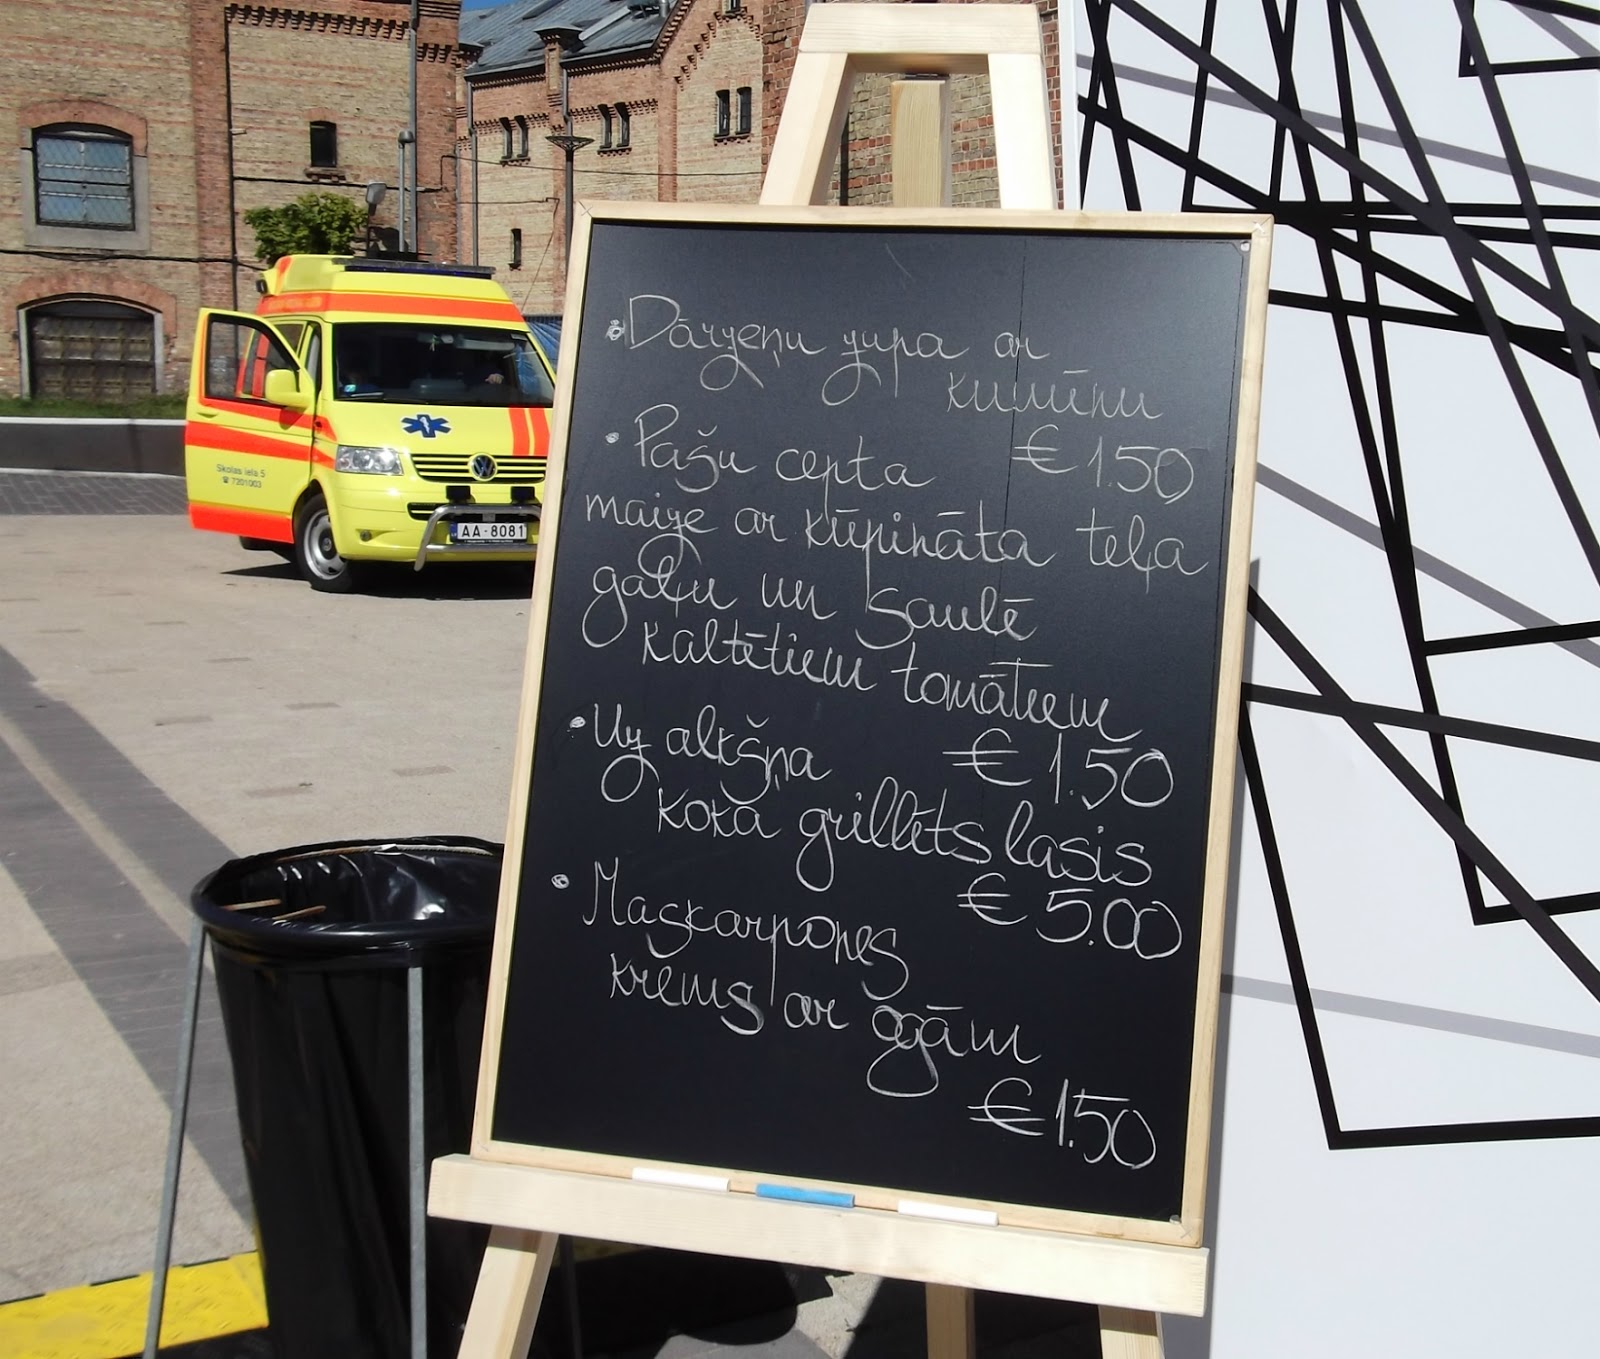 Dārzeņu zupa ar
kumīnu
€ 1.50
Pašu cepta
maize ar kūpināta teļa
gaļu un saulē
kaltētiem tomātiem
€ 1.50
Uz alkšņa
koka grillēts lasis
€ 5.00
Maskarpones
krēms ar ogām
€ 1.50
Skolas iela 5
☎ 7201003
AA-8081